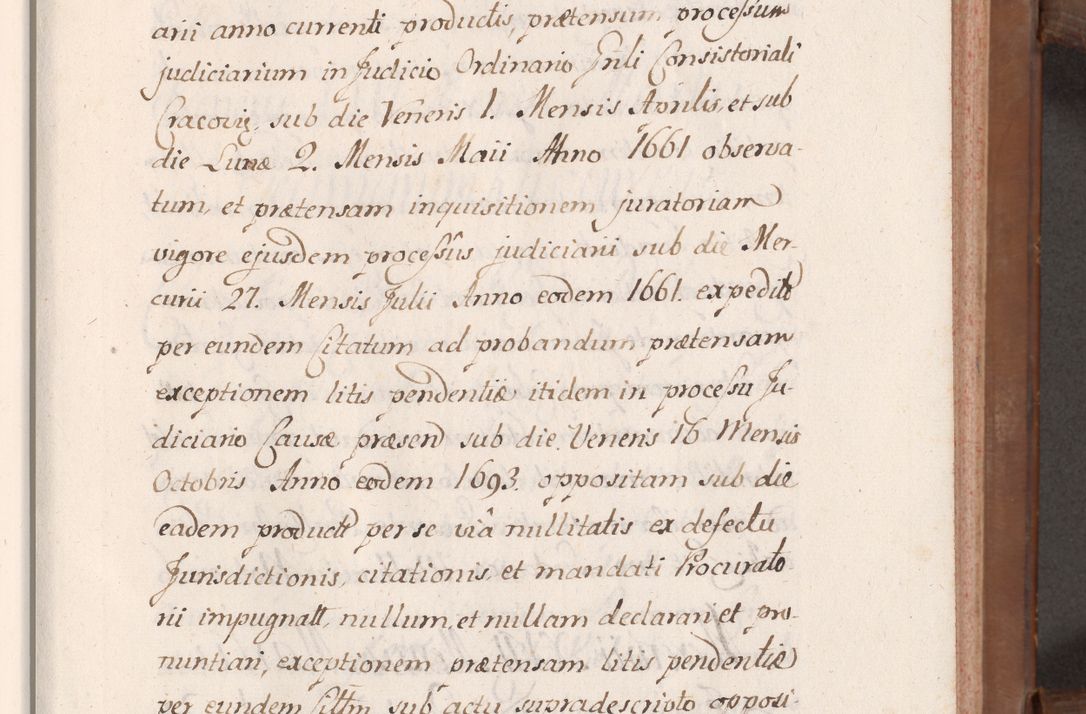 arii anno currenti productis, prætensum processum
judiciarium in Judicio Ordinario Gnli Consistoriali
Cracoviæ, sub die Veneris 1. Mensis Aprilis, et sub
die Lunæ 2. Mensis Maii Anno 1661 observa-
tum, et prætensam inquisitionem juratoriam
vigore ejusdem processûs judiciarii sub die Mer-
curii 27. Mensis Julii Anno eodem 1661. expedit
per eundem Citatum ad probandum prætensam
exceptionem litis pendentiæ itidem in processu Ju-
diciario Causæ præsen sub die Veneris 16 Mensis
Octobris Anno eodem 1693. oppositam sub die
eadem product per se viâ nullitatis ex defectu
Jurisdictionis, citationis, et mandati Procurato
rii impugnatt, nullum, et nullam declaran et pro-
nuntiari, exceptionem prætensam litis pendentiæ
per eundem Cittm sub actu supradescripto opposi-